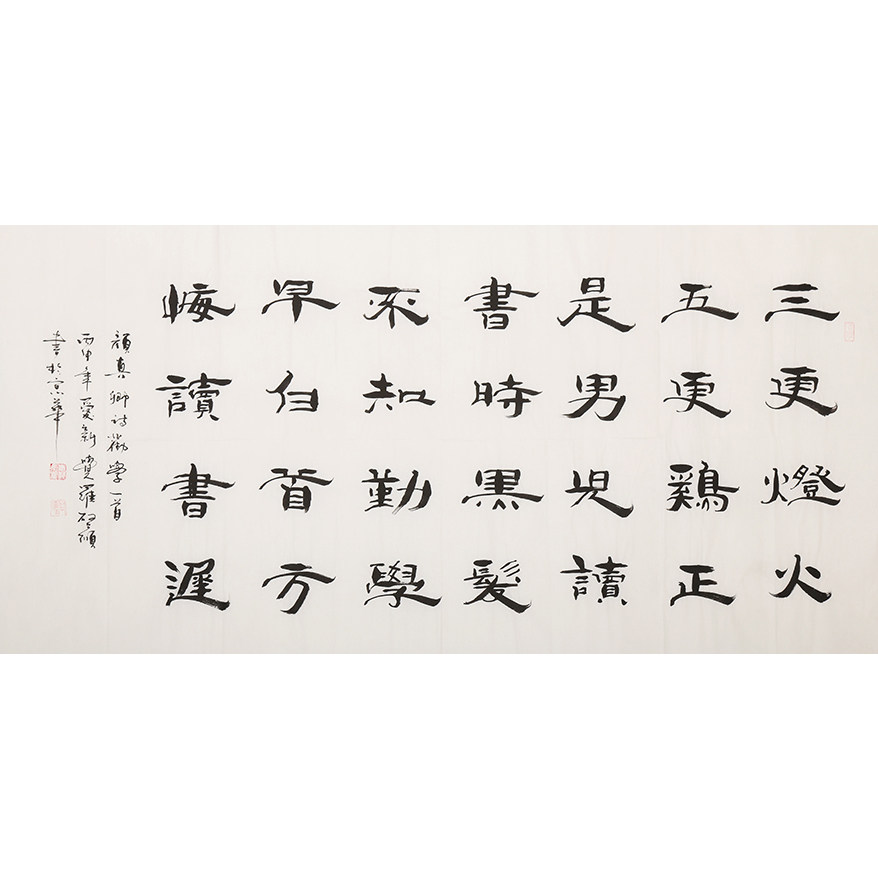 三更燈火
五更鷄正
是男児讀
書時黒髮
不知勤學
早白首方
悔讀書遲
顔真卿诗勸學一首
丙申年愛新覺羅啓頌
書於京華